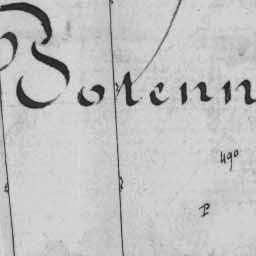 Potenn
490
P